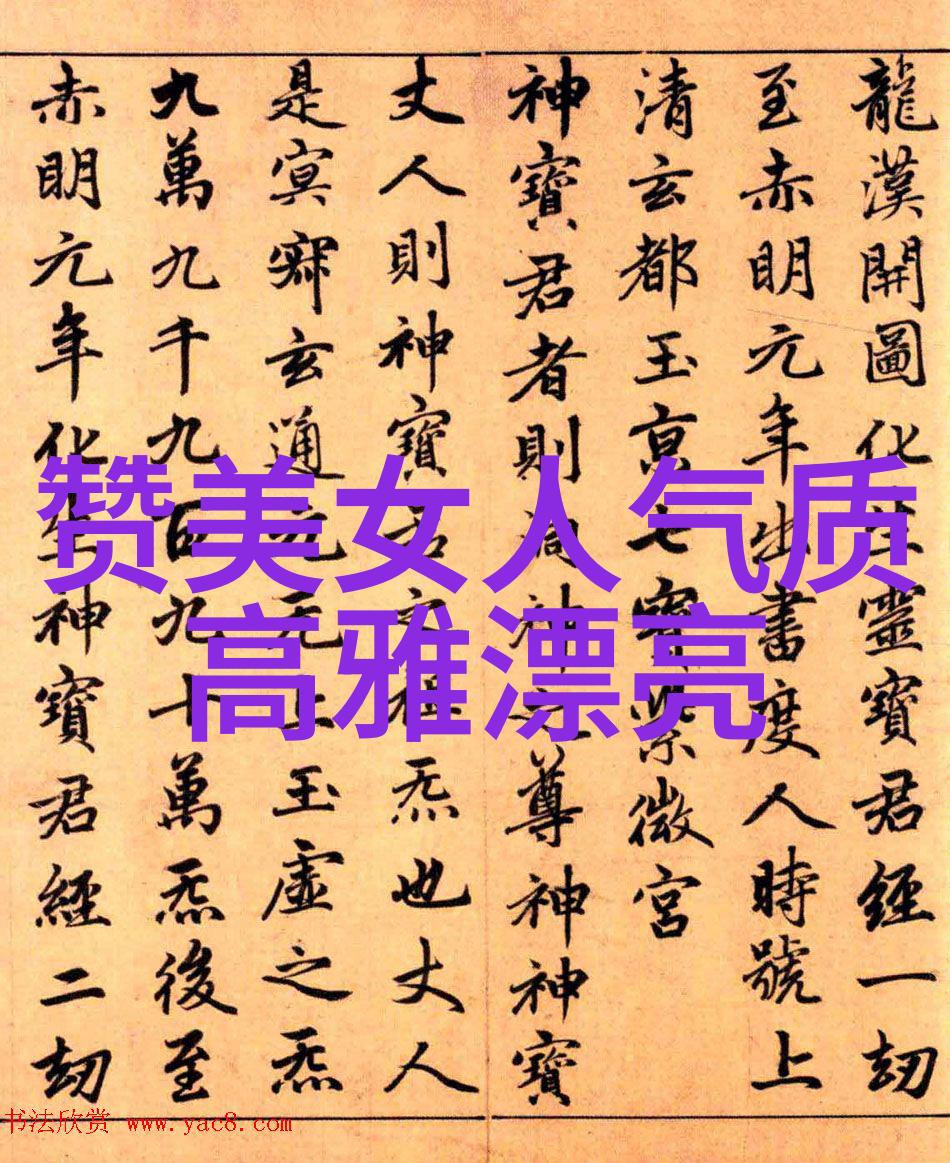 龍漢開圖化生靈寶君經一劫
至赤明元年出書度人時號上
清玄都玉京七寶紫微宮
神寶君者則洞神之尊神神寶
丈人則神寶君之祖炁也丈人
是冥寂玄通元无上玉虛之炁
九萬九千九百九十萬炁後至
赤明元年化生神寶君經二劫
赞美女人气质
高雅漂亮
书法欣赏 www.yac8.com